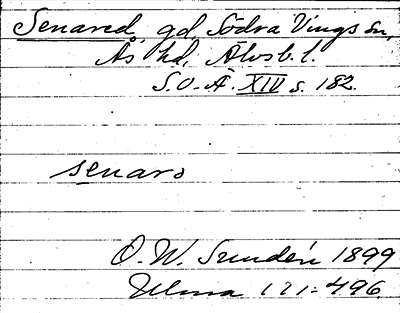 Senared, gd, Södra Vings sn,
Ås hd, Älvsb. l.
S.O.Ä. XIV s. 182.
senarə
O. W. Sundén 1899
Ulma 121:496.